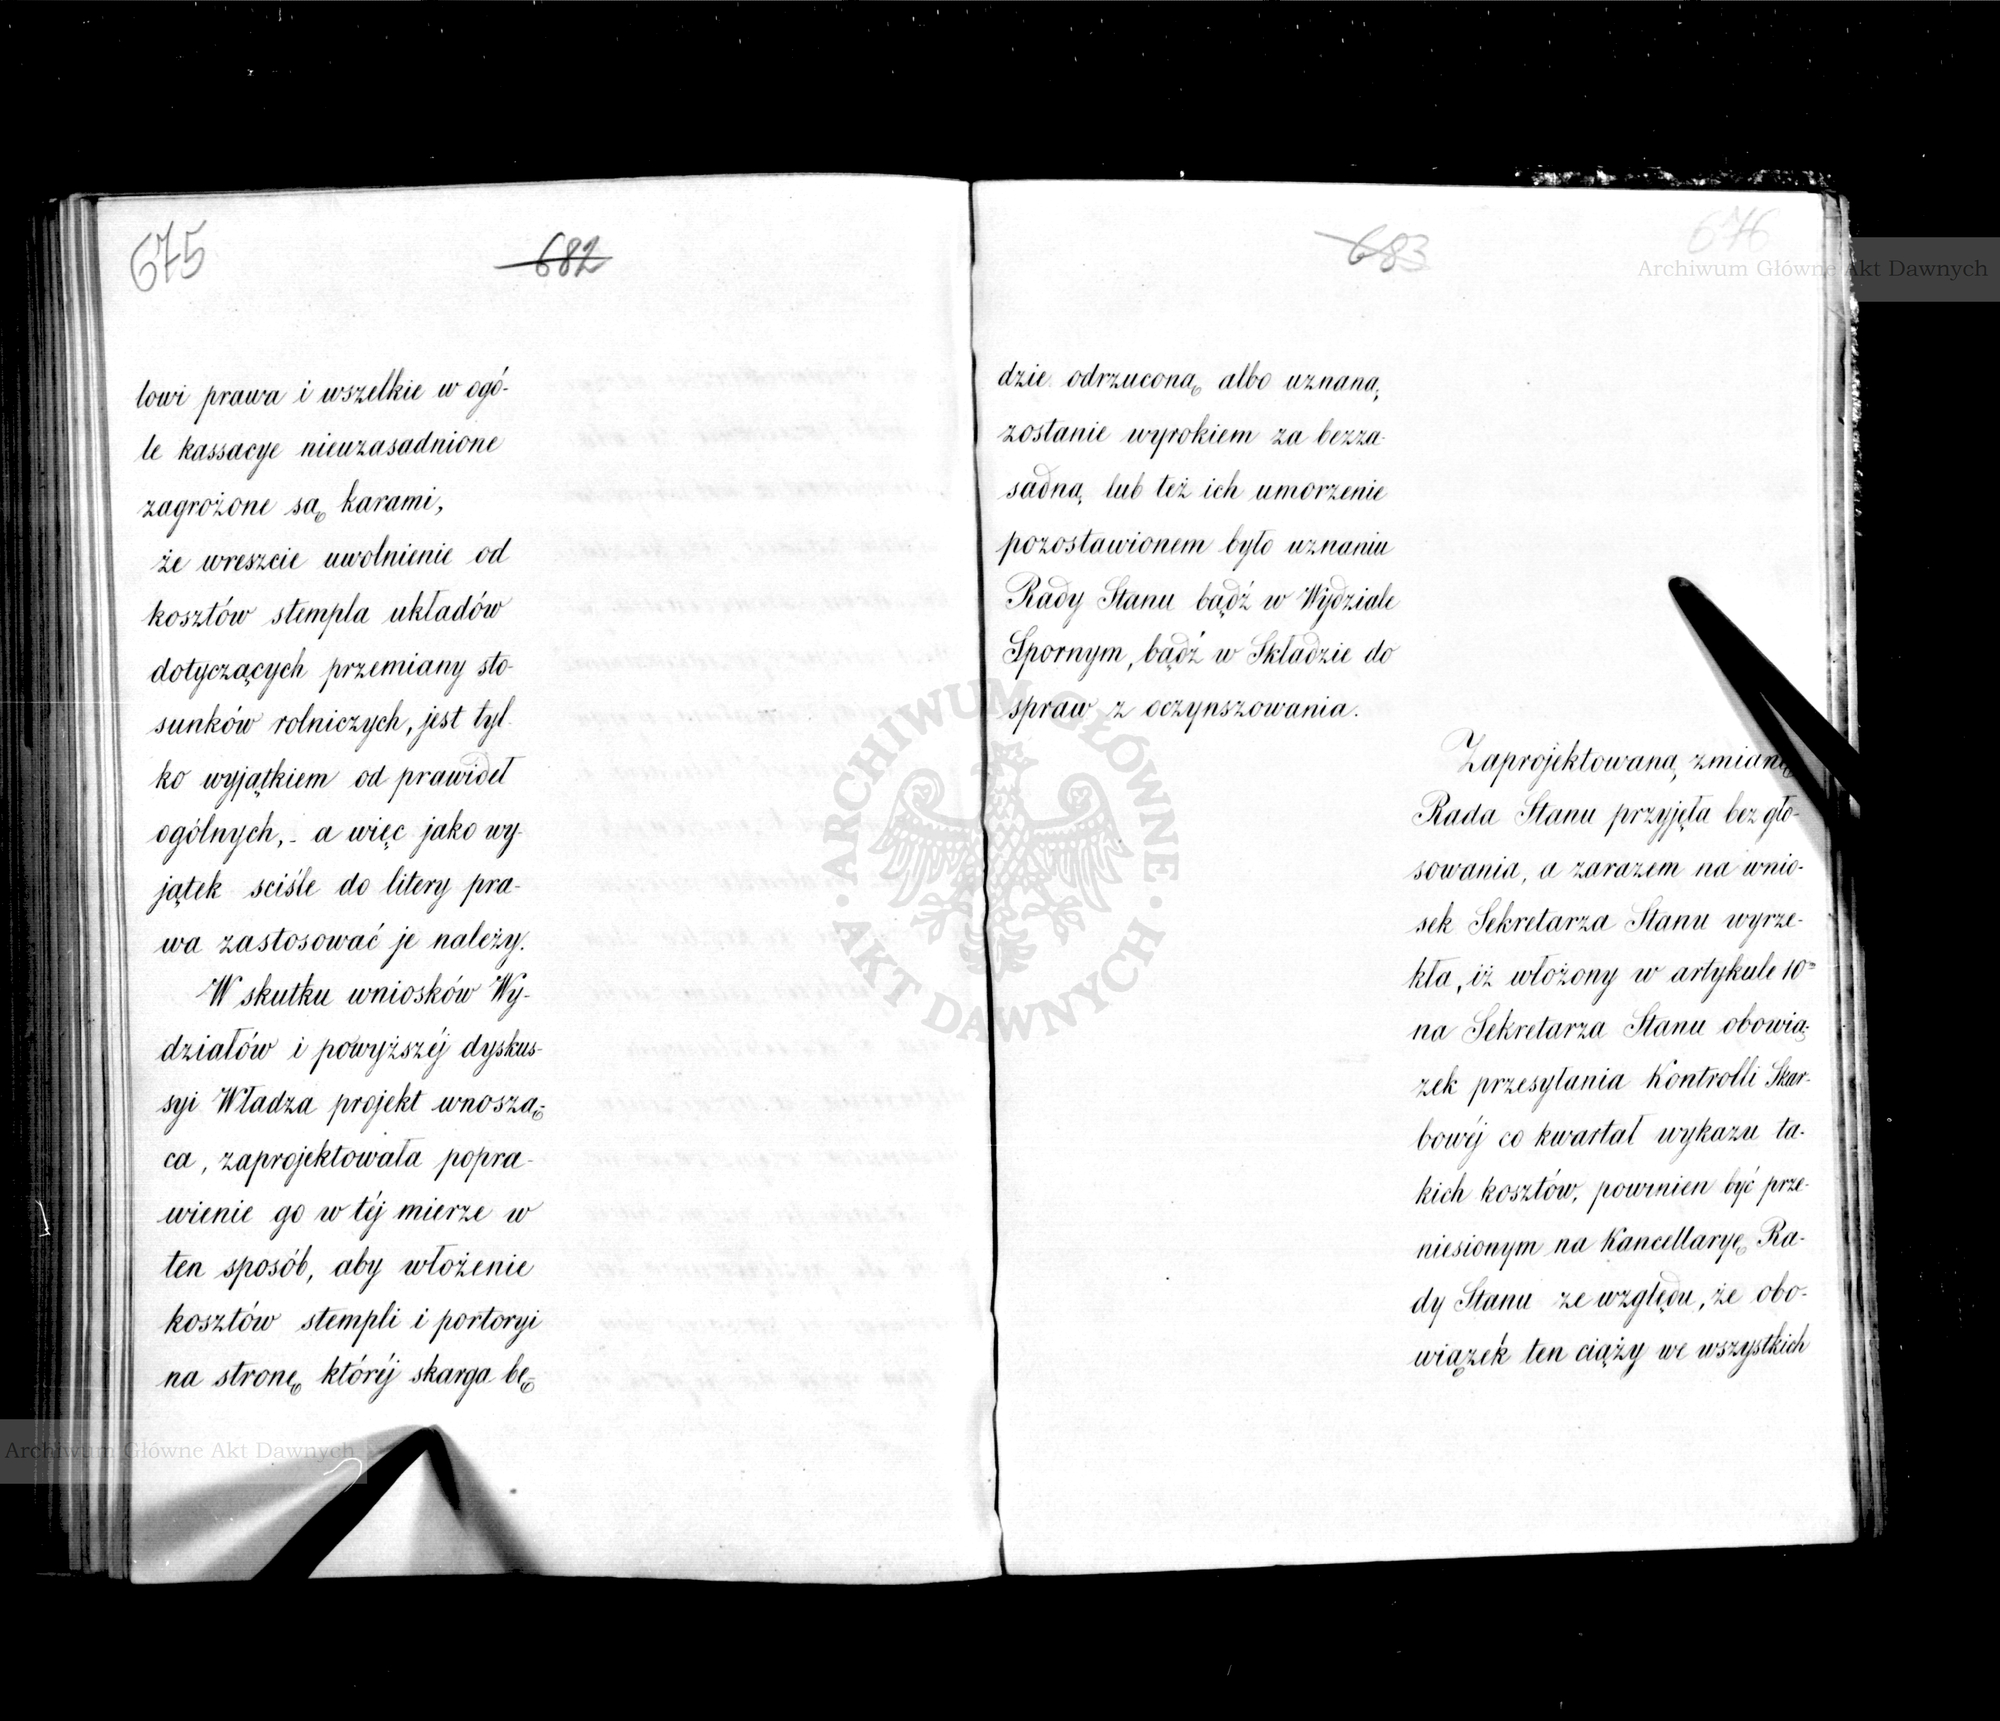 675
682
lowi prawa i wszelkie w ogó-
le kassacye nieuzasadnione
zagrożone są karami,
że wreszcie uwolnienie od
kosztów stempla układów
dotyczących przemiany sto-
sunków rolniczych, jest tyl-
ko wyjątkiem od prawideł
ogólnych, - a więc jako wy-
jątek sciśle do litery pra-
wa zastosować je należy.
W skutku wniosków Wy-
działów i powyższéj dyskus-
syi Władza projekt wnoszą-
ca, zaprojektowała popra-
wienie go w téj mierze w
ten sposób, aby włożenie
kosztów stempli i portoryi
na stronę któréj skarga bę-
683
676
dzie odrzuconą albo uznaną
zostanie wyrokiem za bezza-
sadną lub też ich umorzenie
pozostawionem było uznaniu
Rady Stanu bądź w Wydziale
Spornym, bądź w Składzie do
spraw z oczynszowania.
Zaprojektowaną zmianę
Rada Stanu przyjęła bez gło-
sowania, a zarazem na wnio-
sek Sekretarza Stanu wyrze-
kła, iż włożony w artykule 10m
na Sekretarza Stanu obowią-
zek przesyłania Kontrolli Skar-
bowéj co kwartał wykazu ta-
kich kosztów, powinien być prze-
niesionym na Kancellaryę Ra-
dy Stanu ze względu, że obo-
wiązek ten ciąży we wszystkich
Archiwum Główne Akt Dawnych
ARCHIWUM GŁÓWNE · AKT DAWNYCH ·
Archiwum Główne Akt Dawnych